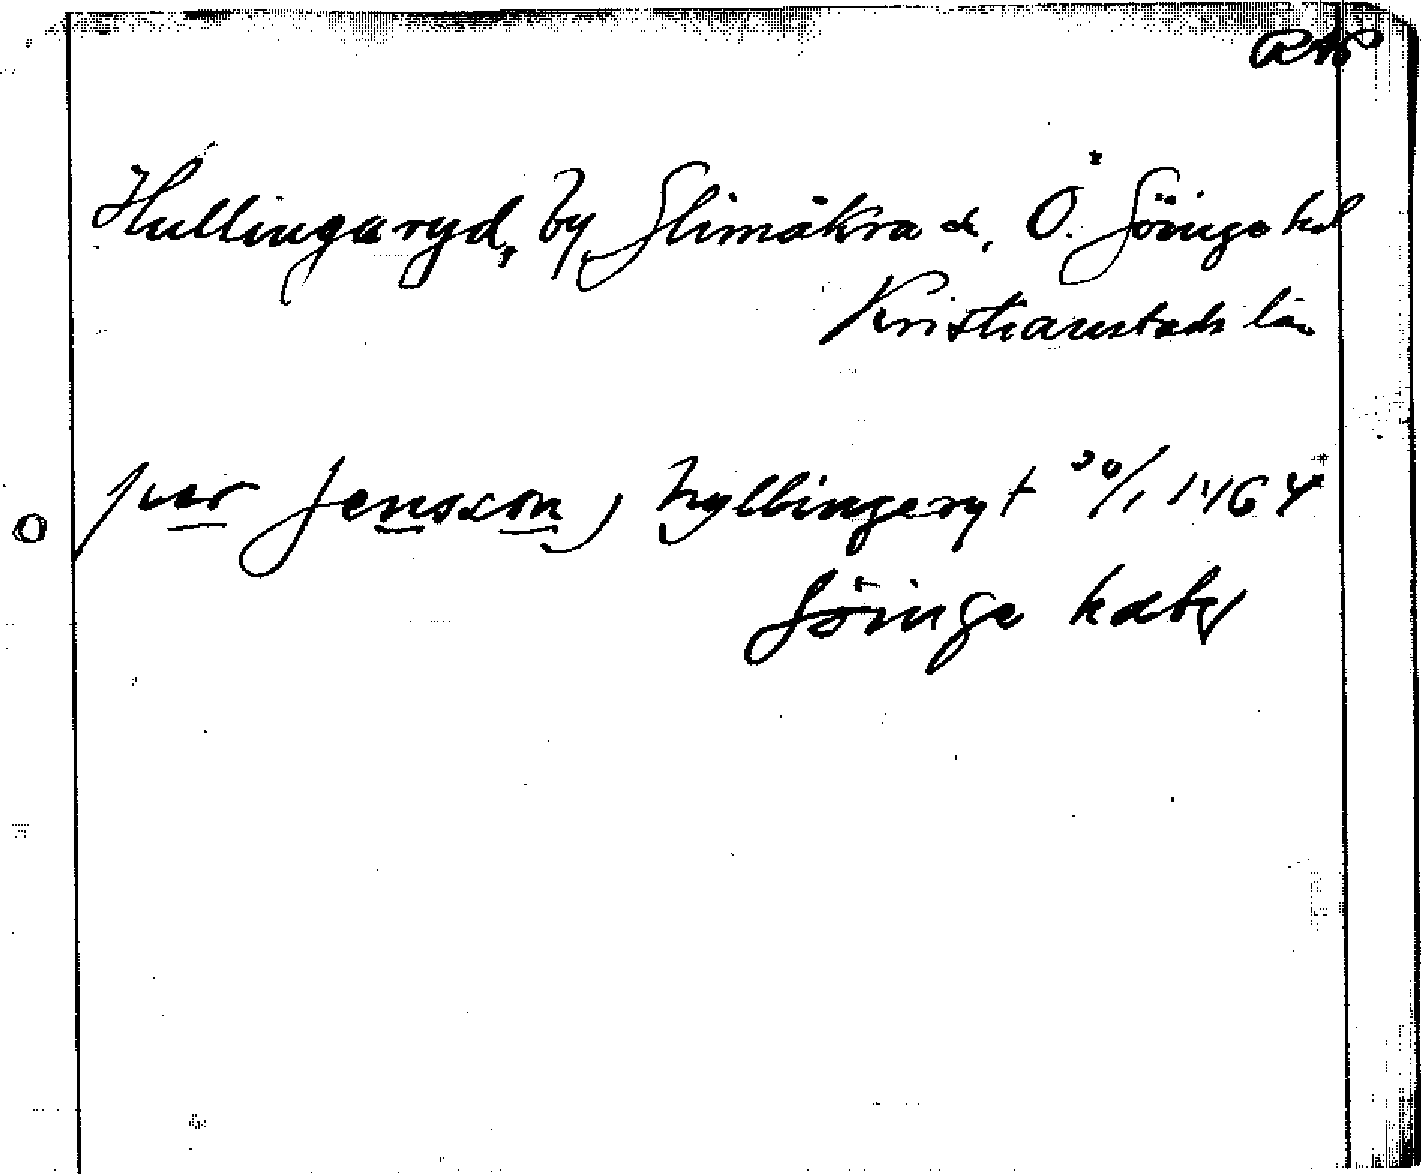 Hullingaryd, by Glimåkra sn, Ö. Göinge hd
Kristianstads län
per Jensson, hyllingeryt 30/1 1464
Göinge